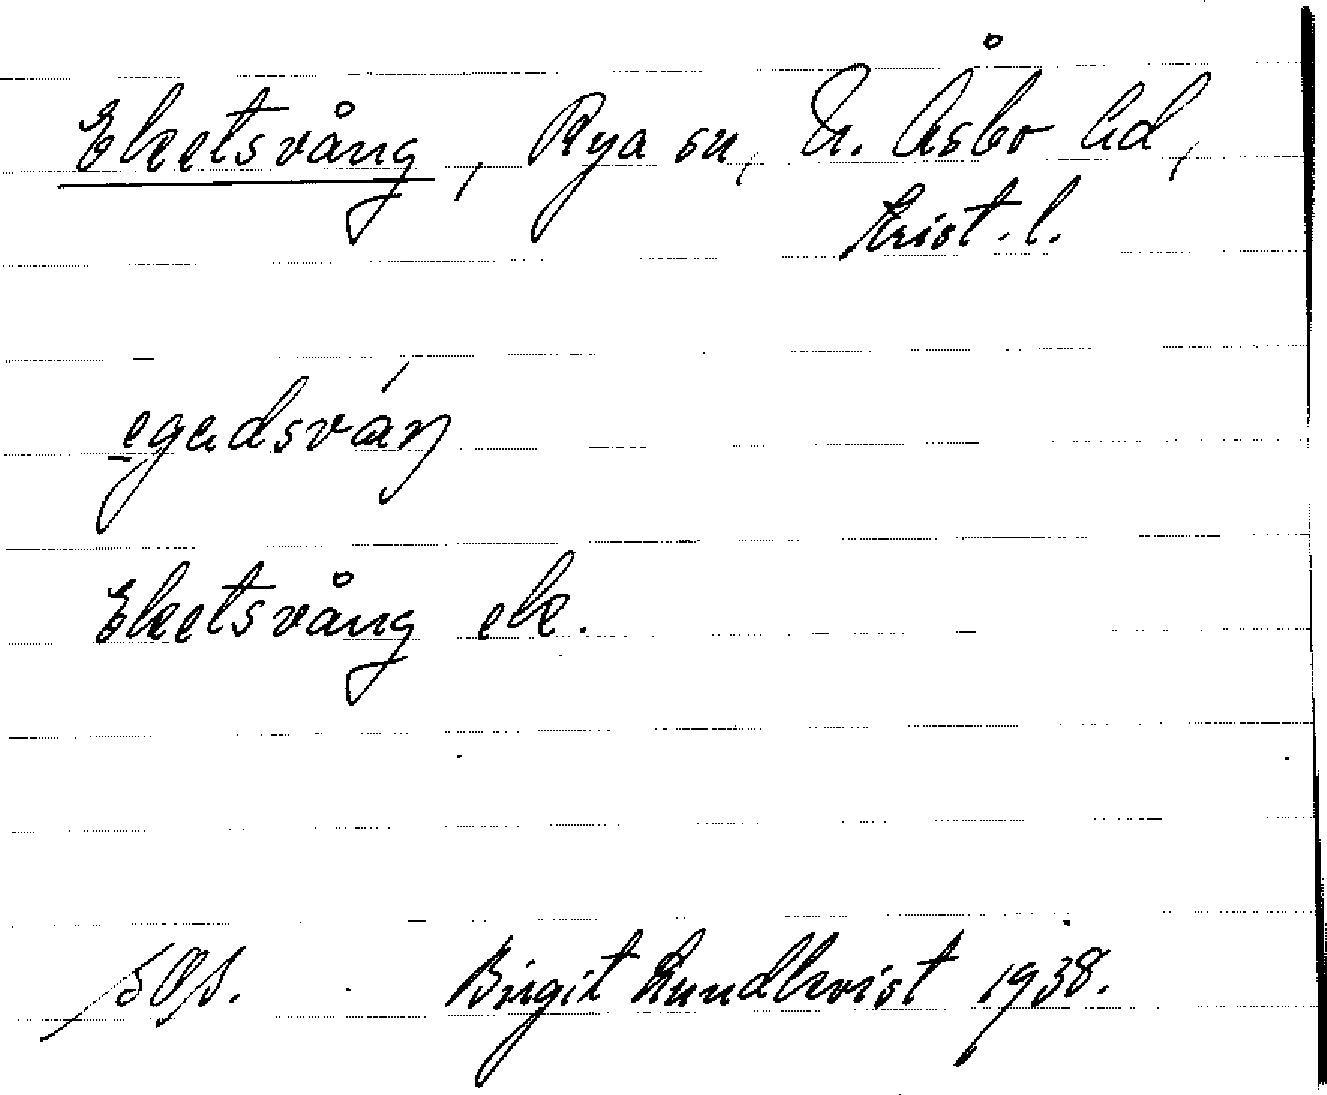 Eketsvång, Rya sn, N. Åsbo hd,
Krist. l.
egadsváŋ
Eketsvång ek.
Birgit Lundkvist 1938.